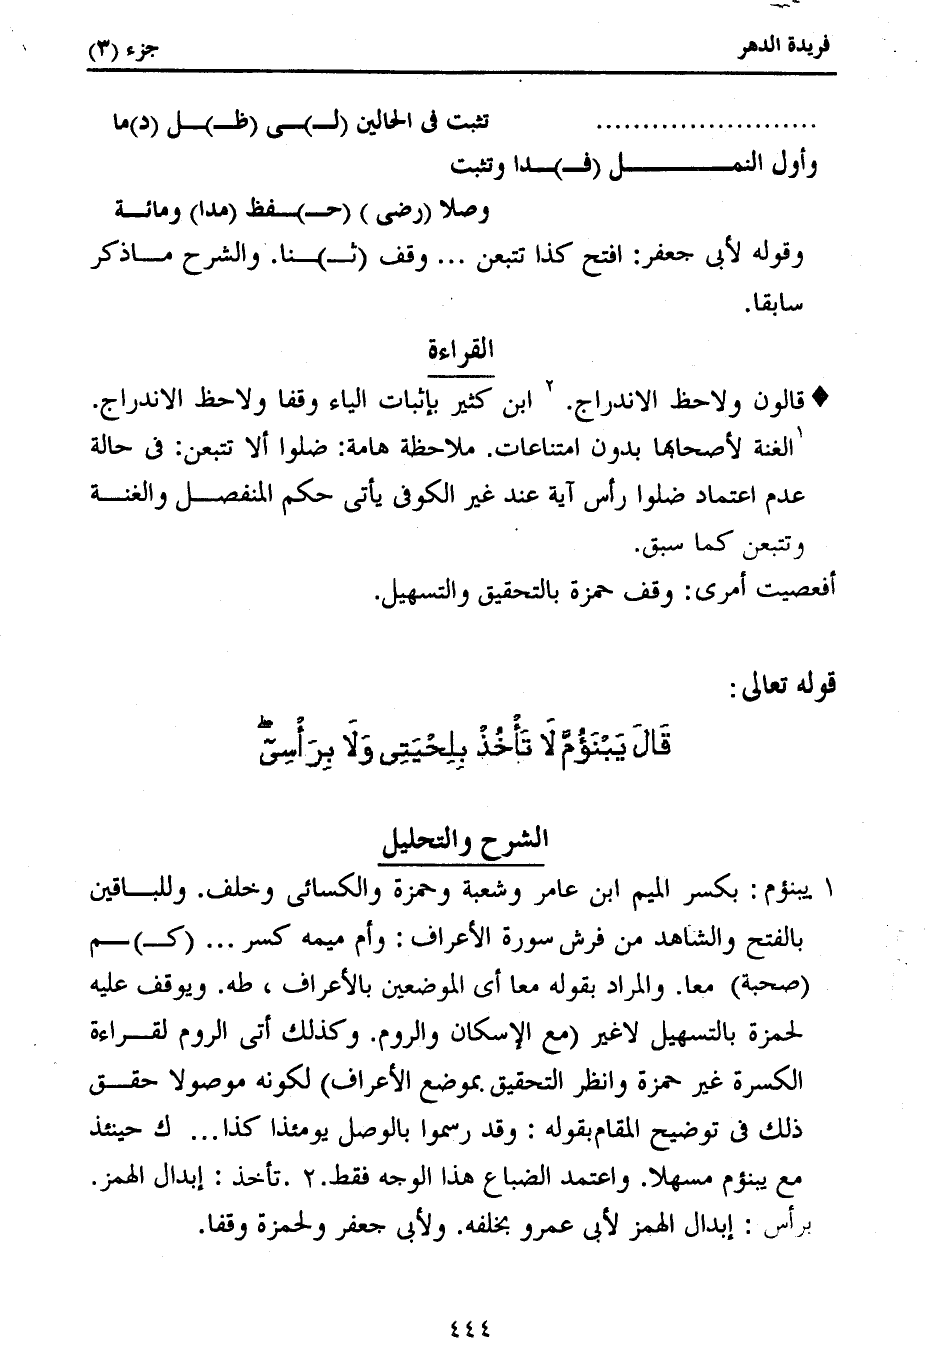 فريدة الدهر
جزء (٣)
........................ تثبت فى الحالين (لـ)ـى (ظـ)ـل (د)ما
وأول النمـــــــل (فـ)ـدا وتثبت
وصلا (رضى) (حـ)ـفظ (مدا) ومائـة
وقوله لأبى جعفر: افتح كذا تتبعن ... وقف (ثـ)ـنا. والشرح مـاذكر
سابقا.
القراءة
♦ قالون ولاحظ الاندراج. ٢ ابن كثير بإثبات الياء وقفا ولاحظ الاندراج.
١ الغنة لأصحابها بدون امتناعات. ملاحظة هامة: ضلوا ألا تتبعن: فى حالة
عدم اعتماد ضلوا رأس آية عند غير الكوفى يأتى حكم المنفصـل والغنـة
وتتبعن كما سبق.
أفعصيت أمرى: وقف حمزة بالتحقيق والتسهيل.
قوله تعالى:
قَالَ يَبْنَؤُمَّ لَا تَأْخُذْ بِلِحْيَتِى وَلَا بِرَأْسِىٓ ۖ
الشرح والتحليل
١ يبنؤم: بكسر الميم ابن عامر وشعبة وحمزة والكسائى وخلف. وللبـاقين
بالفتح والشاهد من فرش سورة الأعراف: وأم ميمه كسر ... (كـ)ـم
(صحبة) معا. والمراد بقوله معا أى الموضعين بالأعراف، طه. ويوقف عليه
لحمزة بالتسهيل لاغير (مع الإسكان والروم. وكذلك أتى الروم لقـراءة
الكسرة غير حمزة وانظر التحقيق بموضع الأعراف) لكونه موصولا حقـق
ذلك فى توضيح المقام بقوله: وقد رسموا بالوصل يومئذا كذا... ك حينئذ
مع يبنؤم مسهلا. واعتمد الضباع هذا الوجه فقط. ٢ .تأخذ: إبدال الهمز.
برأس: إبدال الهمز لأبى عمرو بخلفه. ولأبى جعفر ولحمزة وقفا.
٤٤٤